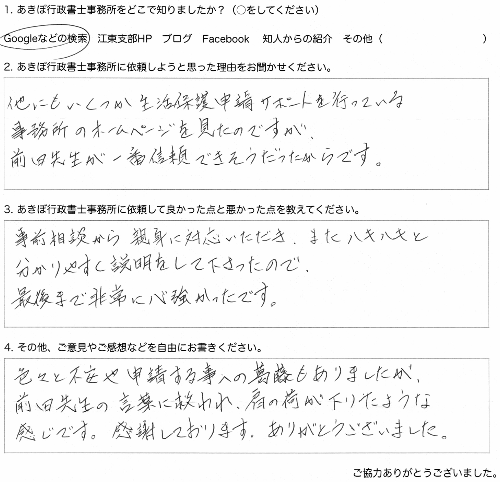 1. あきぼ行政書士事務所をどこで知りましたか？（○をしてください）
Googleなどの検索　江東支部HP　ブログ　Facebook　知人からの紹介　その他（　　　　　　　　）
2. あきぼ行政書士事務所に依頼しようと思った理由をお聞かせください。
他にもいくつか生活保護申請サポートを行っている
事務所のホームページを見たのですが、
前田先生が一番信頼できそうだったからです。
3. あきぼ行政書士事務所に依頼して良かった点と悪かった点を教えてください。
事前相談から親身に対応いただき、またハキハキと
分かりやすく説明をして下さったので、
最後まで非常に心強かったです。
4. その他、ご意見やご感想などを自由にお書きください。
色々と不安や申請する事への葛藤もありましたが、
前田先生の言葉に救われ、肩の荷が下りたような
感じです。感謝しております。ありがとうございました。
ご協力ありがとうございました。